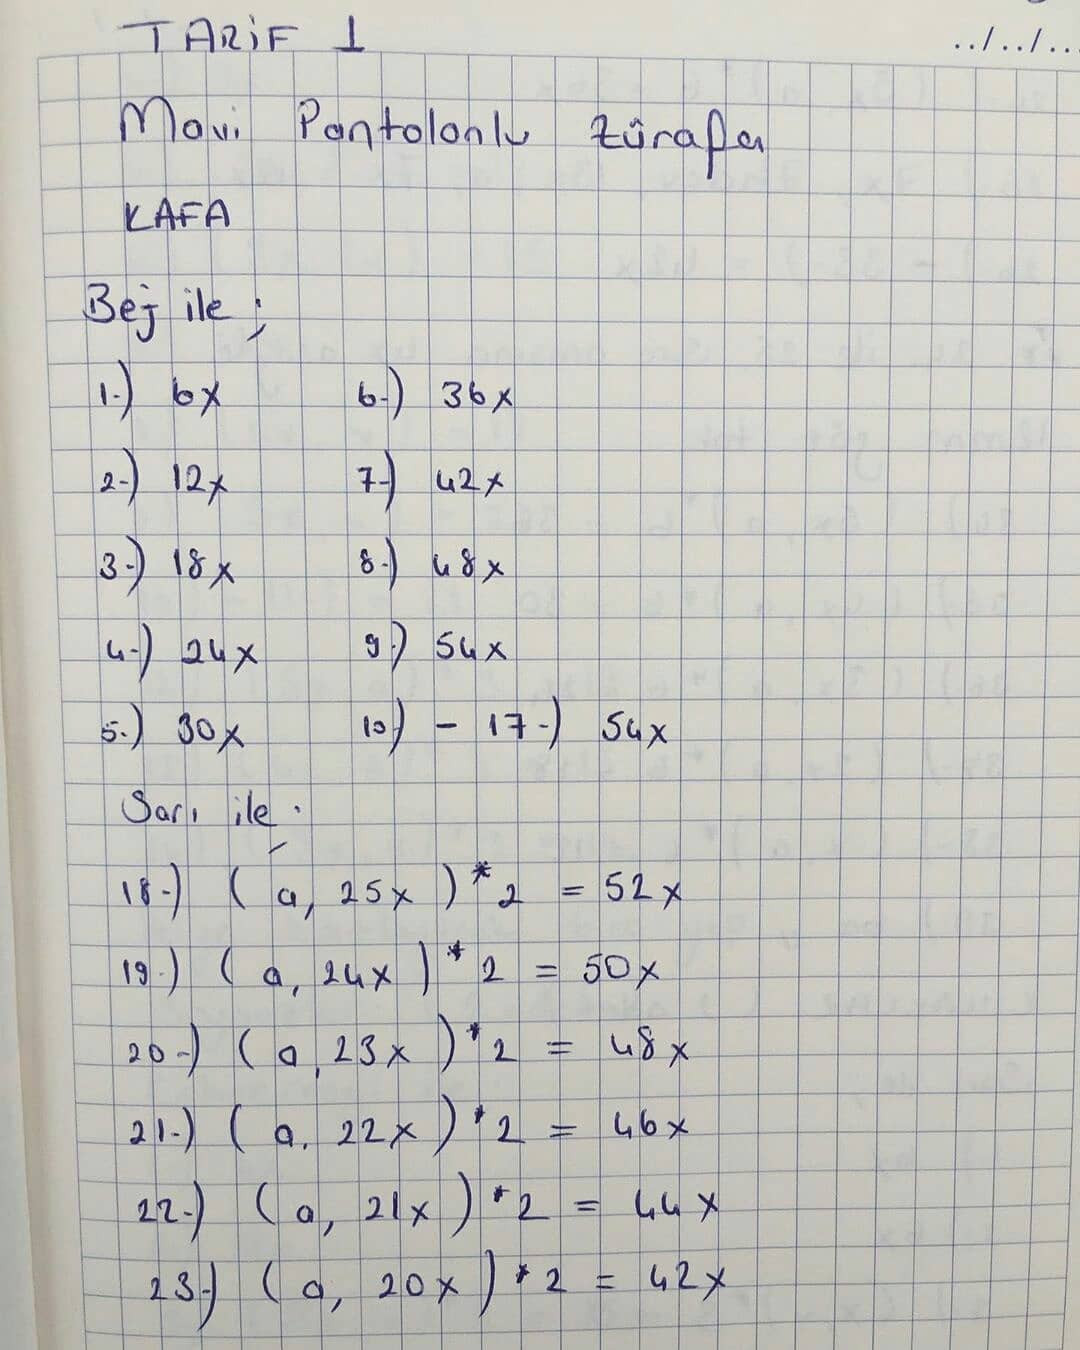 TARİF 1
../../...
Mavi Pantolonlu Zürafa
KAFA
Bej ile ;
1-) 6x 6-) 36x
2-) 12x 7-) 42x
3-) 18x 8-) 48x
4-) 24x 9-) 54x
5-) 30x 10-) - 17-) 54x
Sarı ile ;
18-) ( a, 25x ) * 2 = 52x
19-) ( a, 24x ) * 2 = 50x
20-) ( a, 23x ) * 2 = 48x
21-) ( a, 22x ) * 2 = 46x
22-) ( a, 21x ) * 2 = 44x
23-) ( a, 20x ) * 2 = 42x